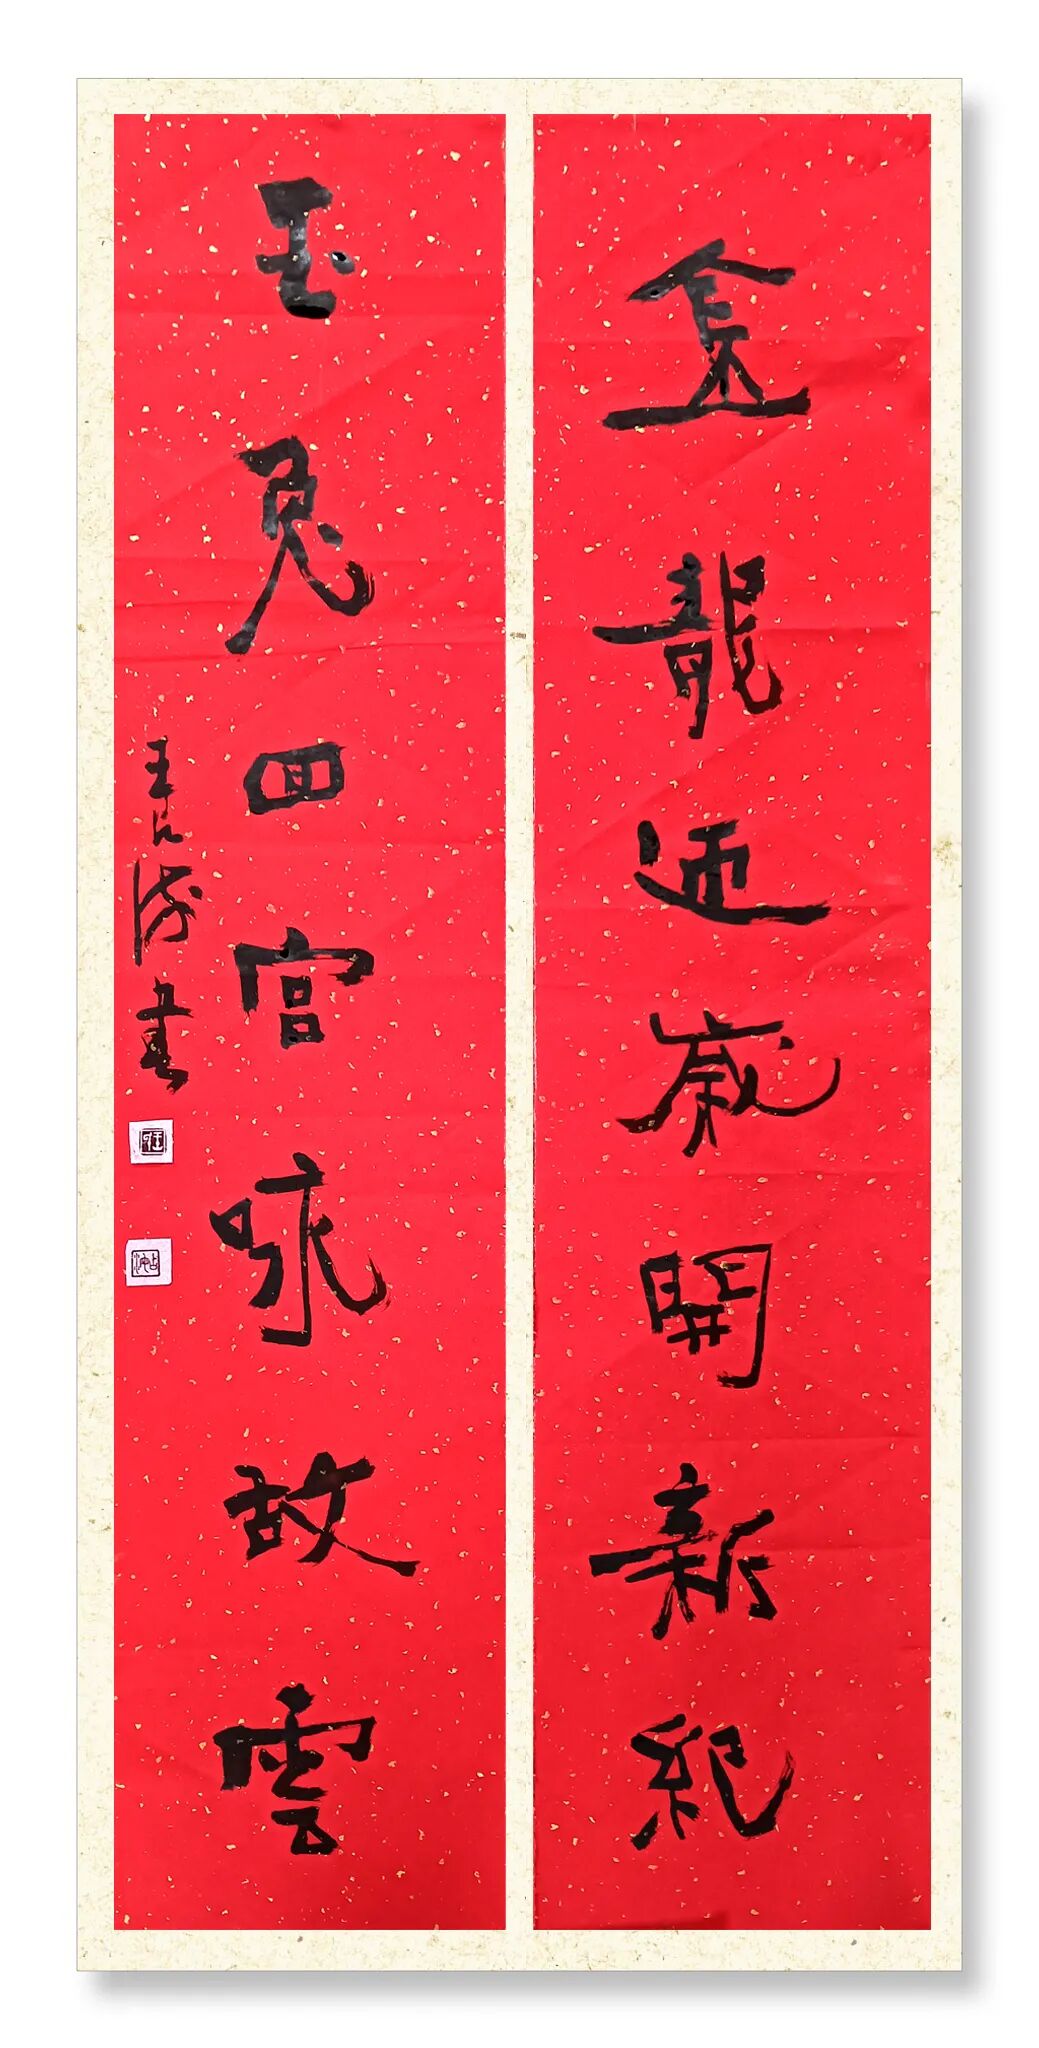 金龍迎歲開新紀
玉兔回宫咏故雲
王
書